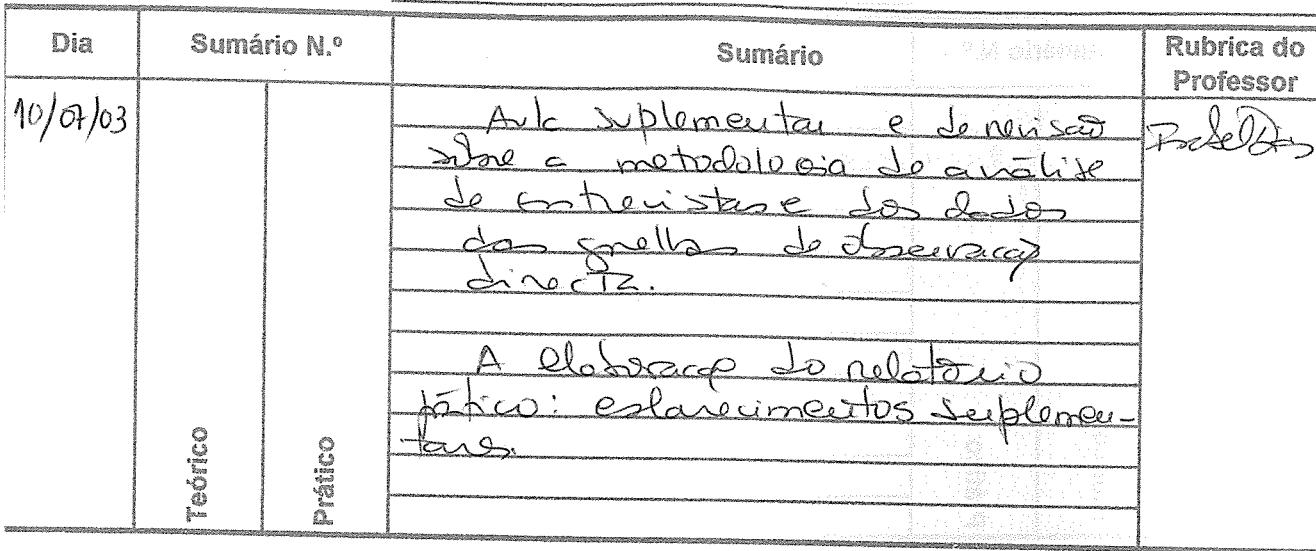 Dia
Sumário N.º
Sumário
Rubrica do
Professor
10/07/03
Aula suplementar e de revisão
sobre a metodologia de análise
de entrevistas e dos dados
das grelhas de observação
directa.
A elaboração do relatório
prático: esclarecimentos suplemen-
tares.
Teórico
Prático